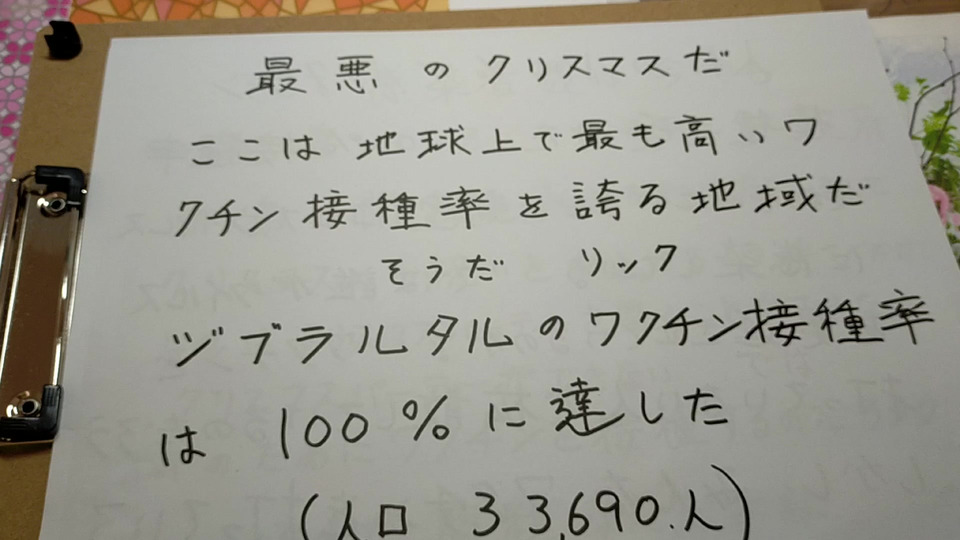 最悪のクリスマスだ
ここは地球上で最も高いワ
クチン接種率を誇る地域だ
そうだ リック
ジブラルタルのワクチン接種率
は 100%に達した
(人口 33,690.人)